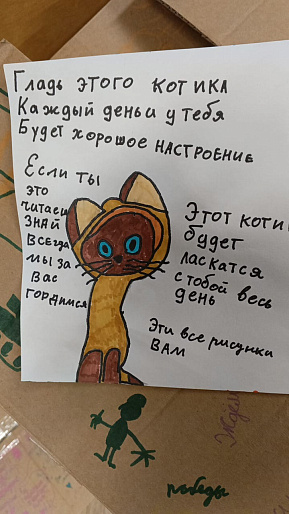 Гладь ЭТОГО КОТИКА
Каждый деньи у тебя
Будет хорошее НАСТРОЕНИЕ
Если ты
это
читаеш
ЗНАЙ
ВСЕГДА
мы за
Вас
гордимся
Этот коти
будет
ласкатся
с тобой весь
день
Эти все рисунки
ВАМ
победы